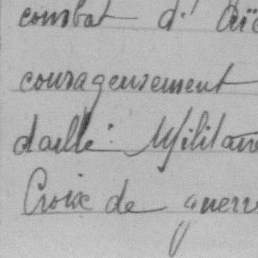 combat d'Aï
courageusement
daille: Militaire
Croix de guerr